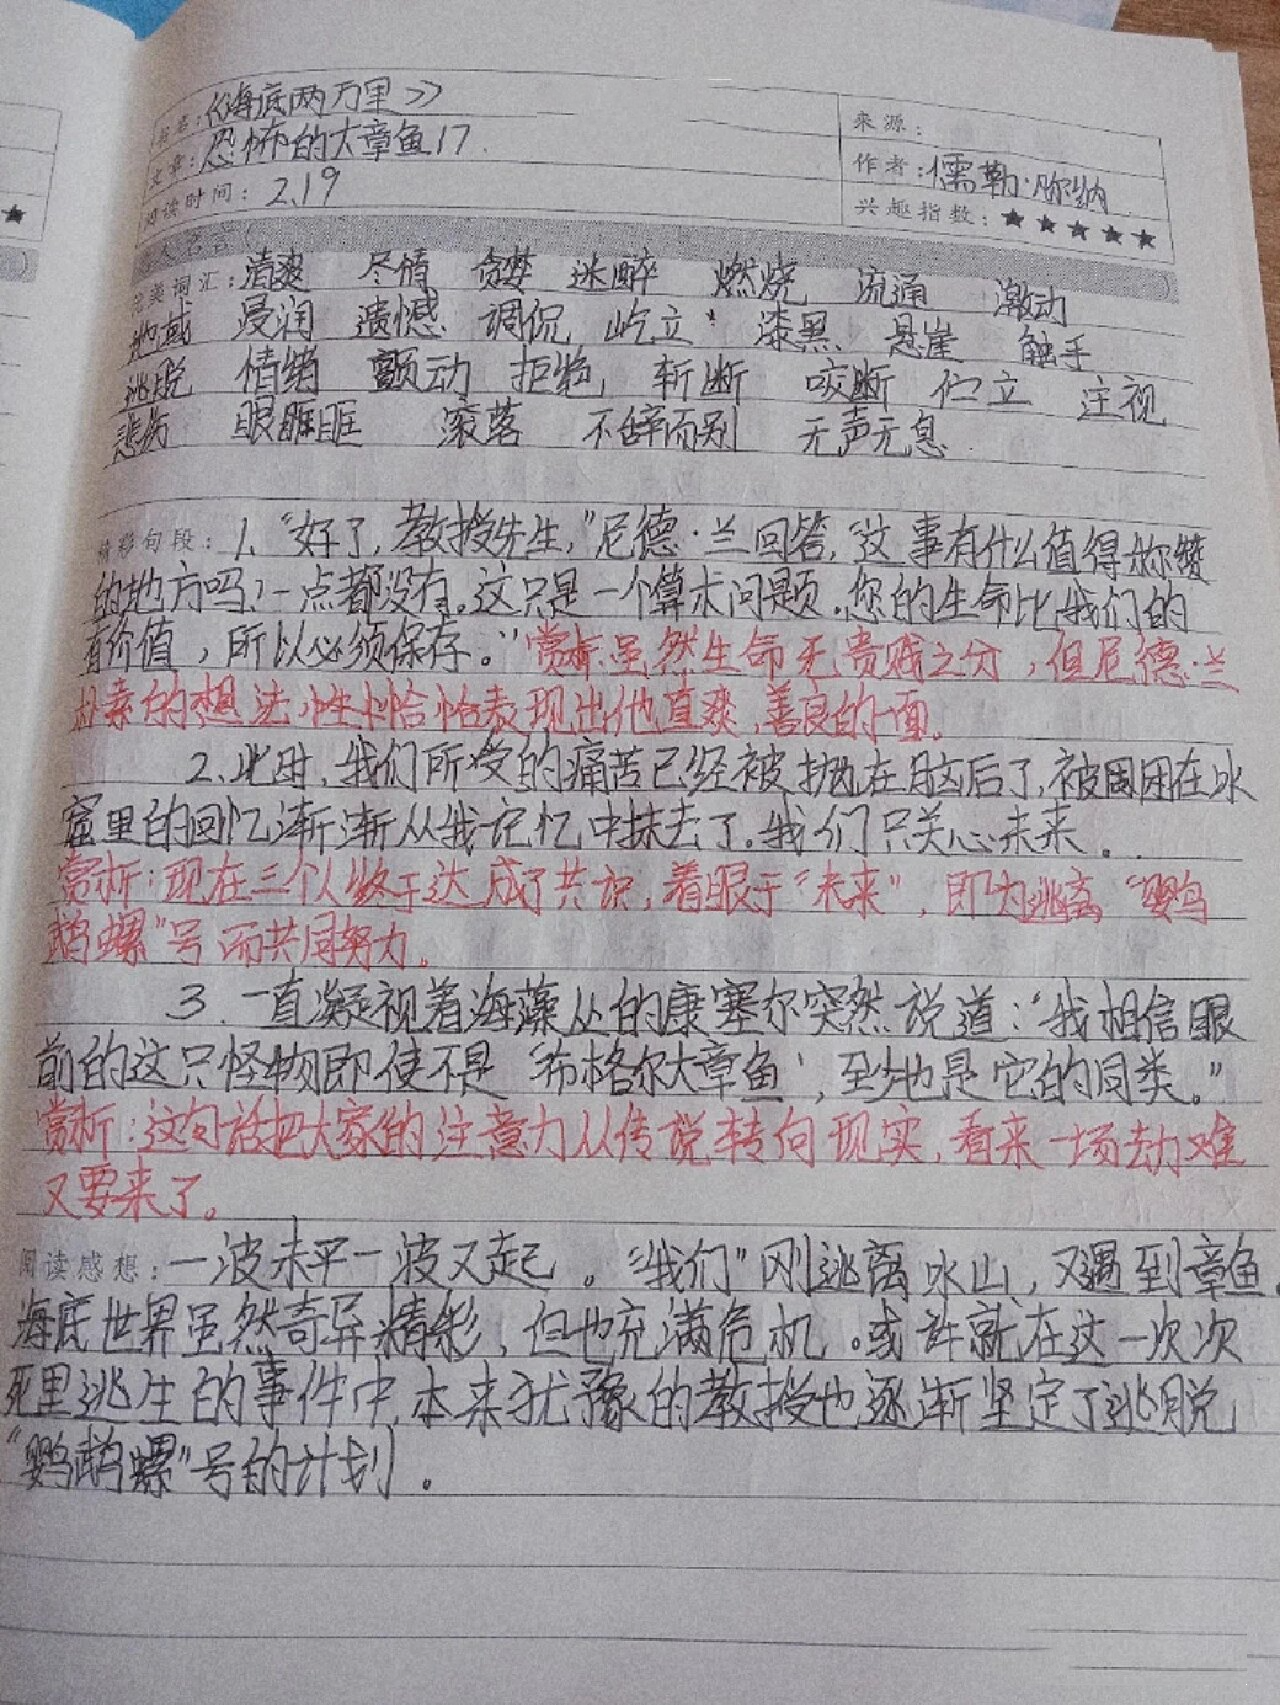 书名:《海底两万里》
来源:
文章:恐怖的大章鱼17
作者:儒勒·凡尔纳
阅读时间:2.19
兴趣指数:★★★★★
人名言(
完美词汇:清爽 尽情 贪婪 迷醉 燃烧 流通 激动
地域 浸润 遗憾 调侃 屹立 漆黑 悬崖 触手
逃脱 情绪 颤动 拒绝 斩断 咬断 伫立 注视
悲伤 眼睚眶 滚落 不辞而别 无声无息
精彩句段:1、“好了,教授先生,”尼德·兰回答,“这事有什么值得称赞
的地方吗?一点都没有。这只是一个算术问题。您的生命比我们的
有价值,所以必须保存。”赏析:虽然生命无贵贱之分,但尼德·兰
朴素的想法,性格恰恰表现出他直爽,善良的一面。
2、此时,我们所受的痛苦已经被抛在脑后了,被围困在冰
窟里的回忆渐渐从我记忆中抹去了。我们只关心未来。
赏析:现在三个人终于达成了共识,着眼于“未来”,即为逃离“鹦
鹉螺”号而共同努力。
3.一直凝视着海藻丛的康塞尔突然说道:“我相信眼
前的这只怪物即使不是‘布格尔大章鱼’,至少也是它的同类。”
赏析:这句话把大家的注意力从传说转向现实,看来一场劫难
又要来了。
阅读感想:一波未平一波又起。“我们”刚逃离冰山,又遇到章鱼。
海底世界虽然奇异精彩,但也充满危机。或许就在这一次次
死里逃生的事件中,本来犹豫的教授也逐渐坚定了逃脱
“鹦鹉螺”号的计划。